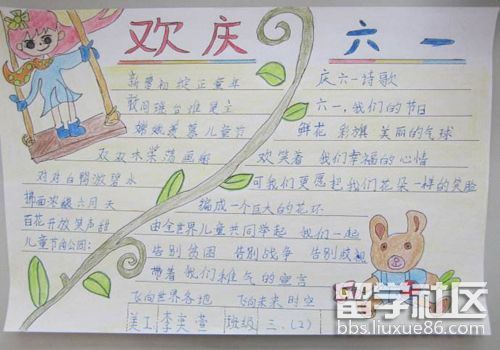 欢庆 六一
新蕾初绽正童年
敢问班台谁是主
嫦娥羡慕儿童节
双双木桨荡画船
对对白鸭激碧水
拂面浓馥六月天
百花开放笑声甜
儿童节向公园:
庆六一诗歌
六一,我们的节日
鲜花 彩旗 美丽的气球
欢笑着 我们幸福的心情
可我们更愿把我们花朵一样的笑脸
编成一个巨大的花环
由全世界儿童共同举起 我们一起
告别贫困 告别战争 告别
带着我们稚气的宣言
飞向世界各地 飞向未来时空
美工 李奕萱 班级 三.(2)
留学社区
bbs.liuxue86.com